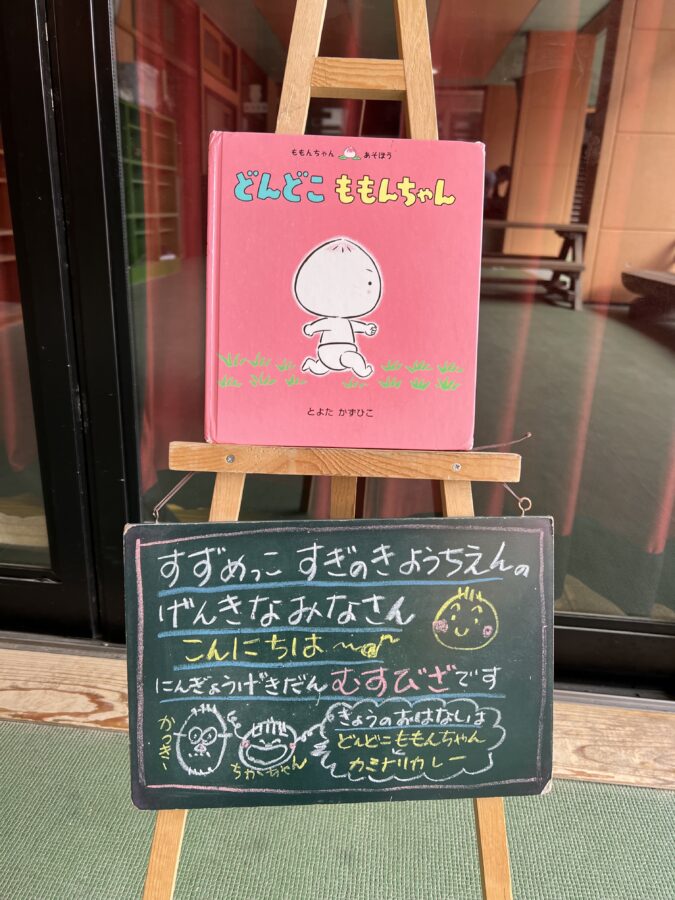 ももんちゃん あそぼう
どんどこ ももんちゃん
とよた かずひこ
すずめっこ すぎのきょうちえんの
げんきなみなさん
こんにちは
にんぎょうげきだん むすびざです
かつきー
ちかちゃん
きょうのおはなしは
どんどこももんちゃん
と
カミナリカレー